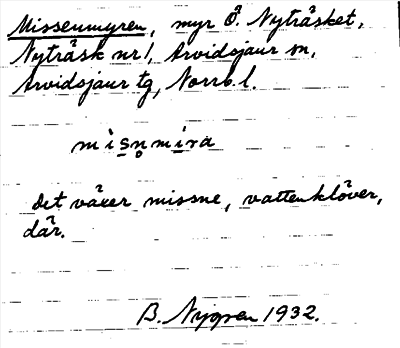 Missenmyren, myr Ö. Nyträsket,
Nyträsk nr 1, Arvidsjaur sn,
Arvidsjaur tg, Norrb. l.
misn̥mira
Det växer missne, vattenklöver,
där.
B. Nygren 1932.